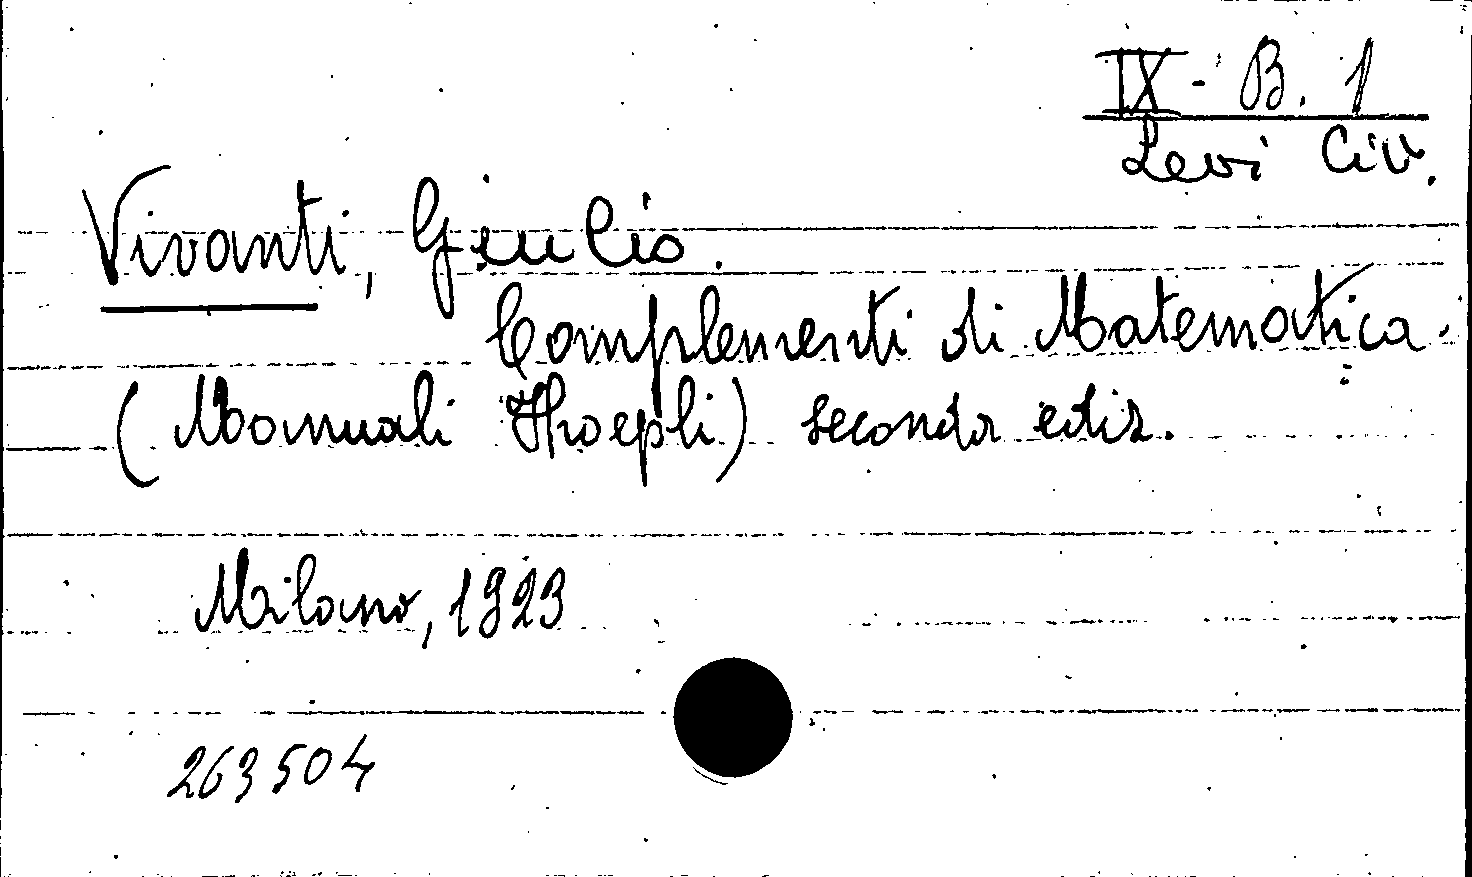 IX - B. 1
Levi Civ.
Vivanti, Giulio.
Complementi di Matematica.
(Manuali Hoepli) seconda ediz.
Milano, 1923
263504